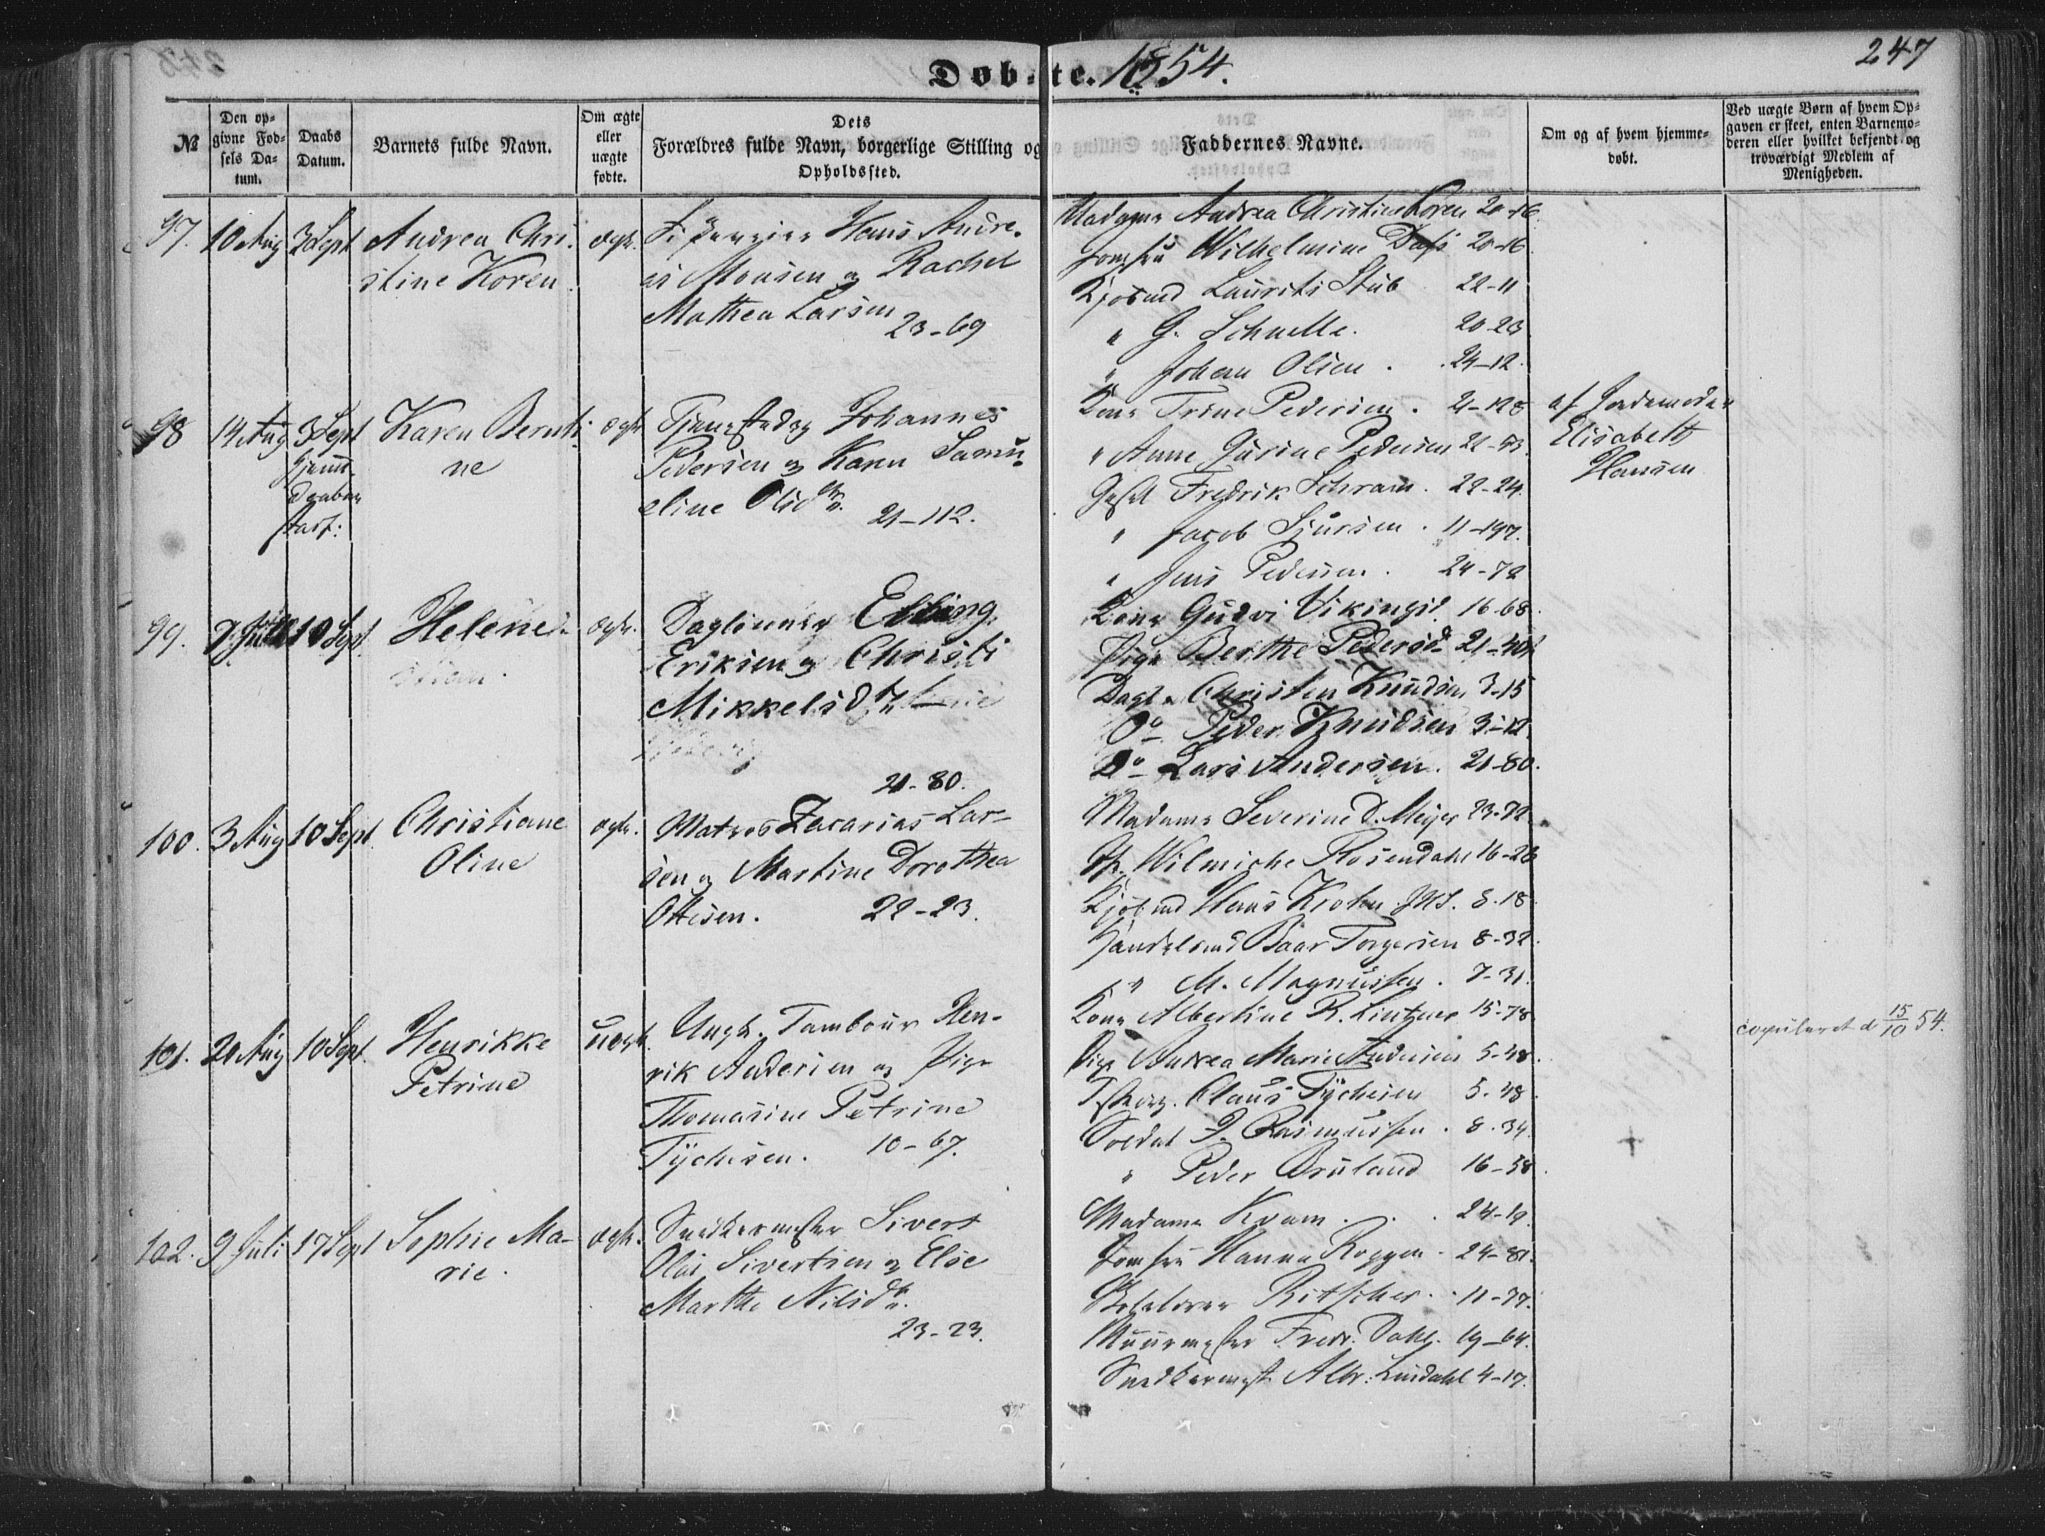 247
Døbte. 1854.
№
Den opgivne Fødsels Datum.
Daabs Datum.
Barnets fulde Navn.
Om ægte eller uægte fødte.
Dets Forældres fulde Navn, borgerlige Stilling og Opholdssted.
Faddernes Navne.
Om og af hvem hjemmedøbt.
Ved uægte Børn af hvem Opgaven er skeet, enten Barnemoderen eller hvilket bekjendt og troværdigt Medlem af Menigheden.
97. 10 Aug 3 Sept Andrea Chri-
stine Koren
ægte.
Hans Andre-
as Monsen og Rachel
Mathea Larsen
23-69
Madame Andrea Christine Koren 20-16
Jomfru Wilhelmine 20-16
Kjøbmd Laurits Stub 22-11
" G. 20-23
" Johan Olsen . 24-12.
98 14 Aug 3 Sept Karen Bernti-
ne
ægte
Johannes
Pedersen og Karen Samu-
eline Olsdtr.
21-112.
Kone Trine Pedersen . 21-128
" Anne Gurine Pedersen 21-53
Fredrik Schram . 22-24.
" Jacob Sjursen . 11-197.
" Jens Pedersen . 24-72
af Jordemoder
Elisabeth
Hansen
99. 10 Sept. Helene
ægte.
Elling
Eriksen og Christi
Mikkelsdtr
21-80.
Kone Gudvi Vikingsd. 16-68.
Pige Berthe Pedersdr 21-
Christen Knudsen 3-15
Do Peder Knudsen 3-12.
Do Lars Andersen. 21-80.
100. 3 Aug 10 Sept Christiane
Oline
ægte.
Matros Zacarias Lar-
sen og Martine Dorothea
Ottesen. 22-23.
Madame Severine D. Meyer 23-72.
Wilmiche Rosendahl 16-28
Kjøbmd Hans Krohn 8-18.
Handelsmd Baar Torgersen 8-32
" M. Magnussen . 7-31.
101. 20 Aug 10 Sept. Henrikke
Petrine
uægte.
Ungk. Tambour Hen-
rik Andersen og Pige
Thomasine Petrine
Tychesen. 10-67.
Kone Albertine R. Lintzner 15-78
Pige Andrea Marie Andersen 5-48.
Claus Tychesen 5-48
Soldat Rasmussen . 8-34.
" Peder Bruland 16-58
copuleret d 15/10 54.
102. 9 Juli 17 Sept Sophie Ma-
rie.
ægte.
Snedkermester Sivert
Olai Sivertsen og Else
Marthe Nilsdtr.
23-23.
Madame Kvam . . . 24-19.
Jomfru Hanna Roggen . 24-81.
Ritscher . 11-77.
Muurmester Fredr. Dahl. 19-64.
Snedkermest Albr. Lindahl 4-17.